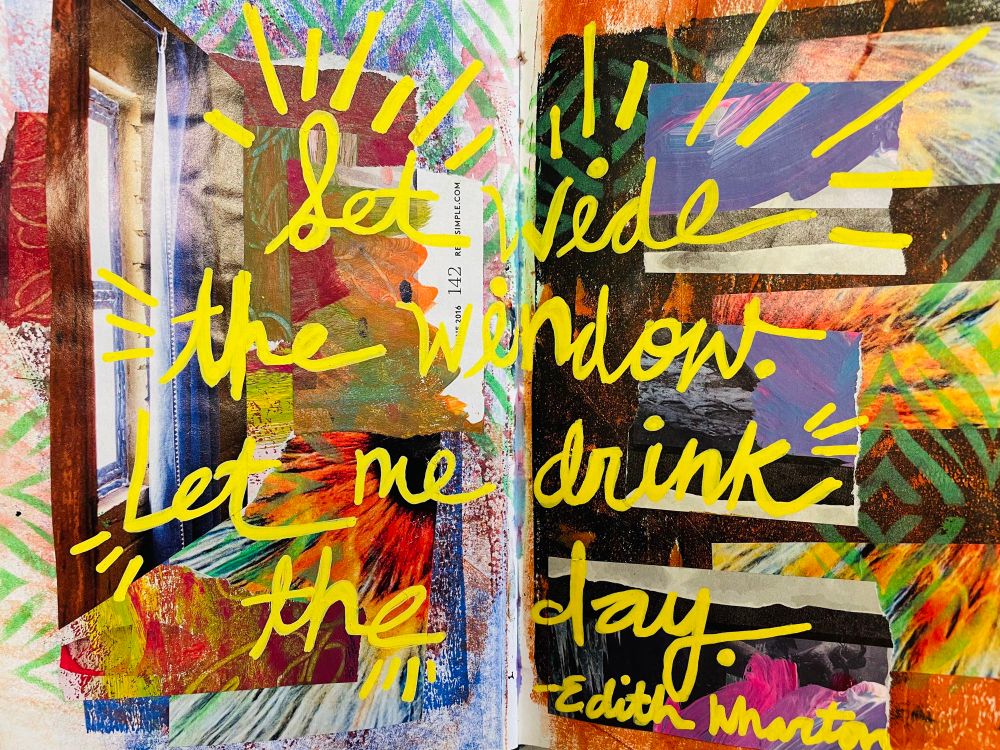 Set wide
the window.
Let me drink
the day.
-Edith Wharton
142 REALSIMPLE.COM
2016